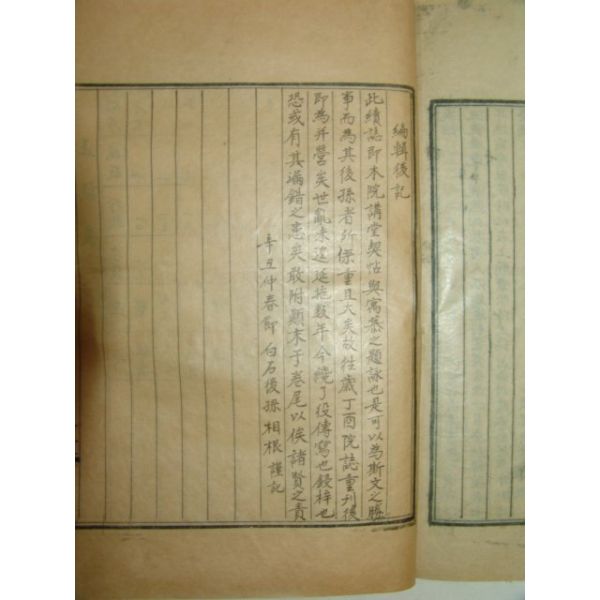 編輯後記
此續誌即本院講堂契帖與寓慕之題詠也是可以為斯文之勝
事而為其後孫者所係重且大矣故往歲丁酉院誌重刊後
即為并營矣世亂未遑延拖数年今纔了役傳寫也鋟梓也
恐或有其漏錯之患矣敢附顚末于卷尾以俟諸賢之責
辛丑仲春節 白石後孫 相根 謹記